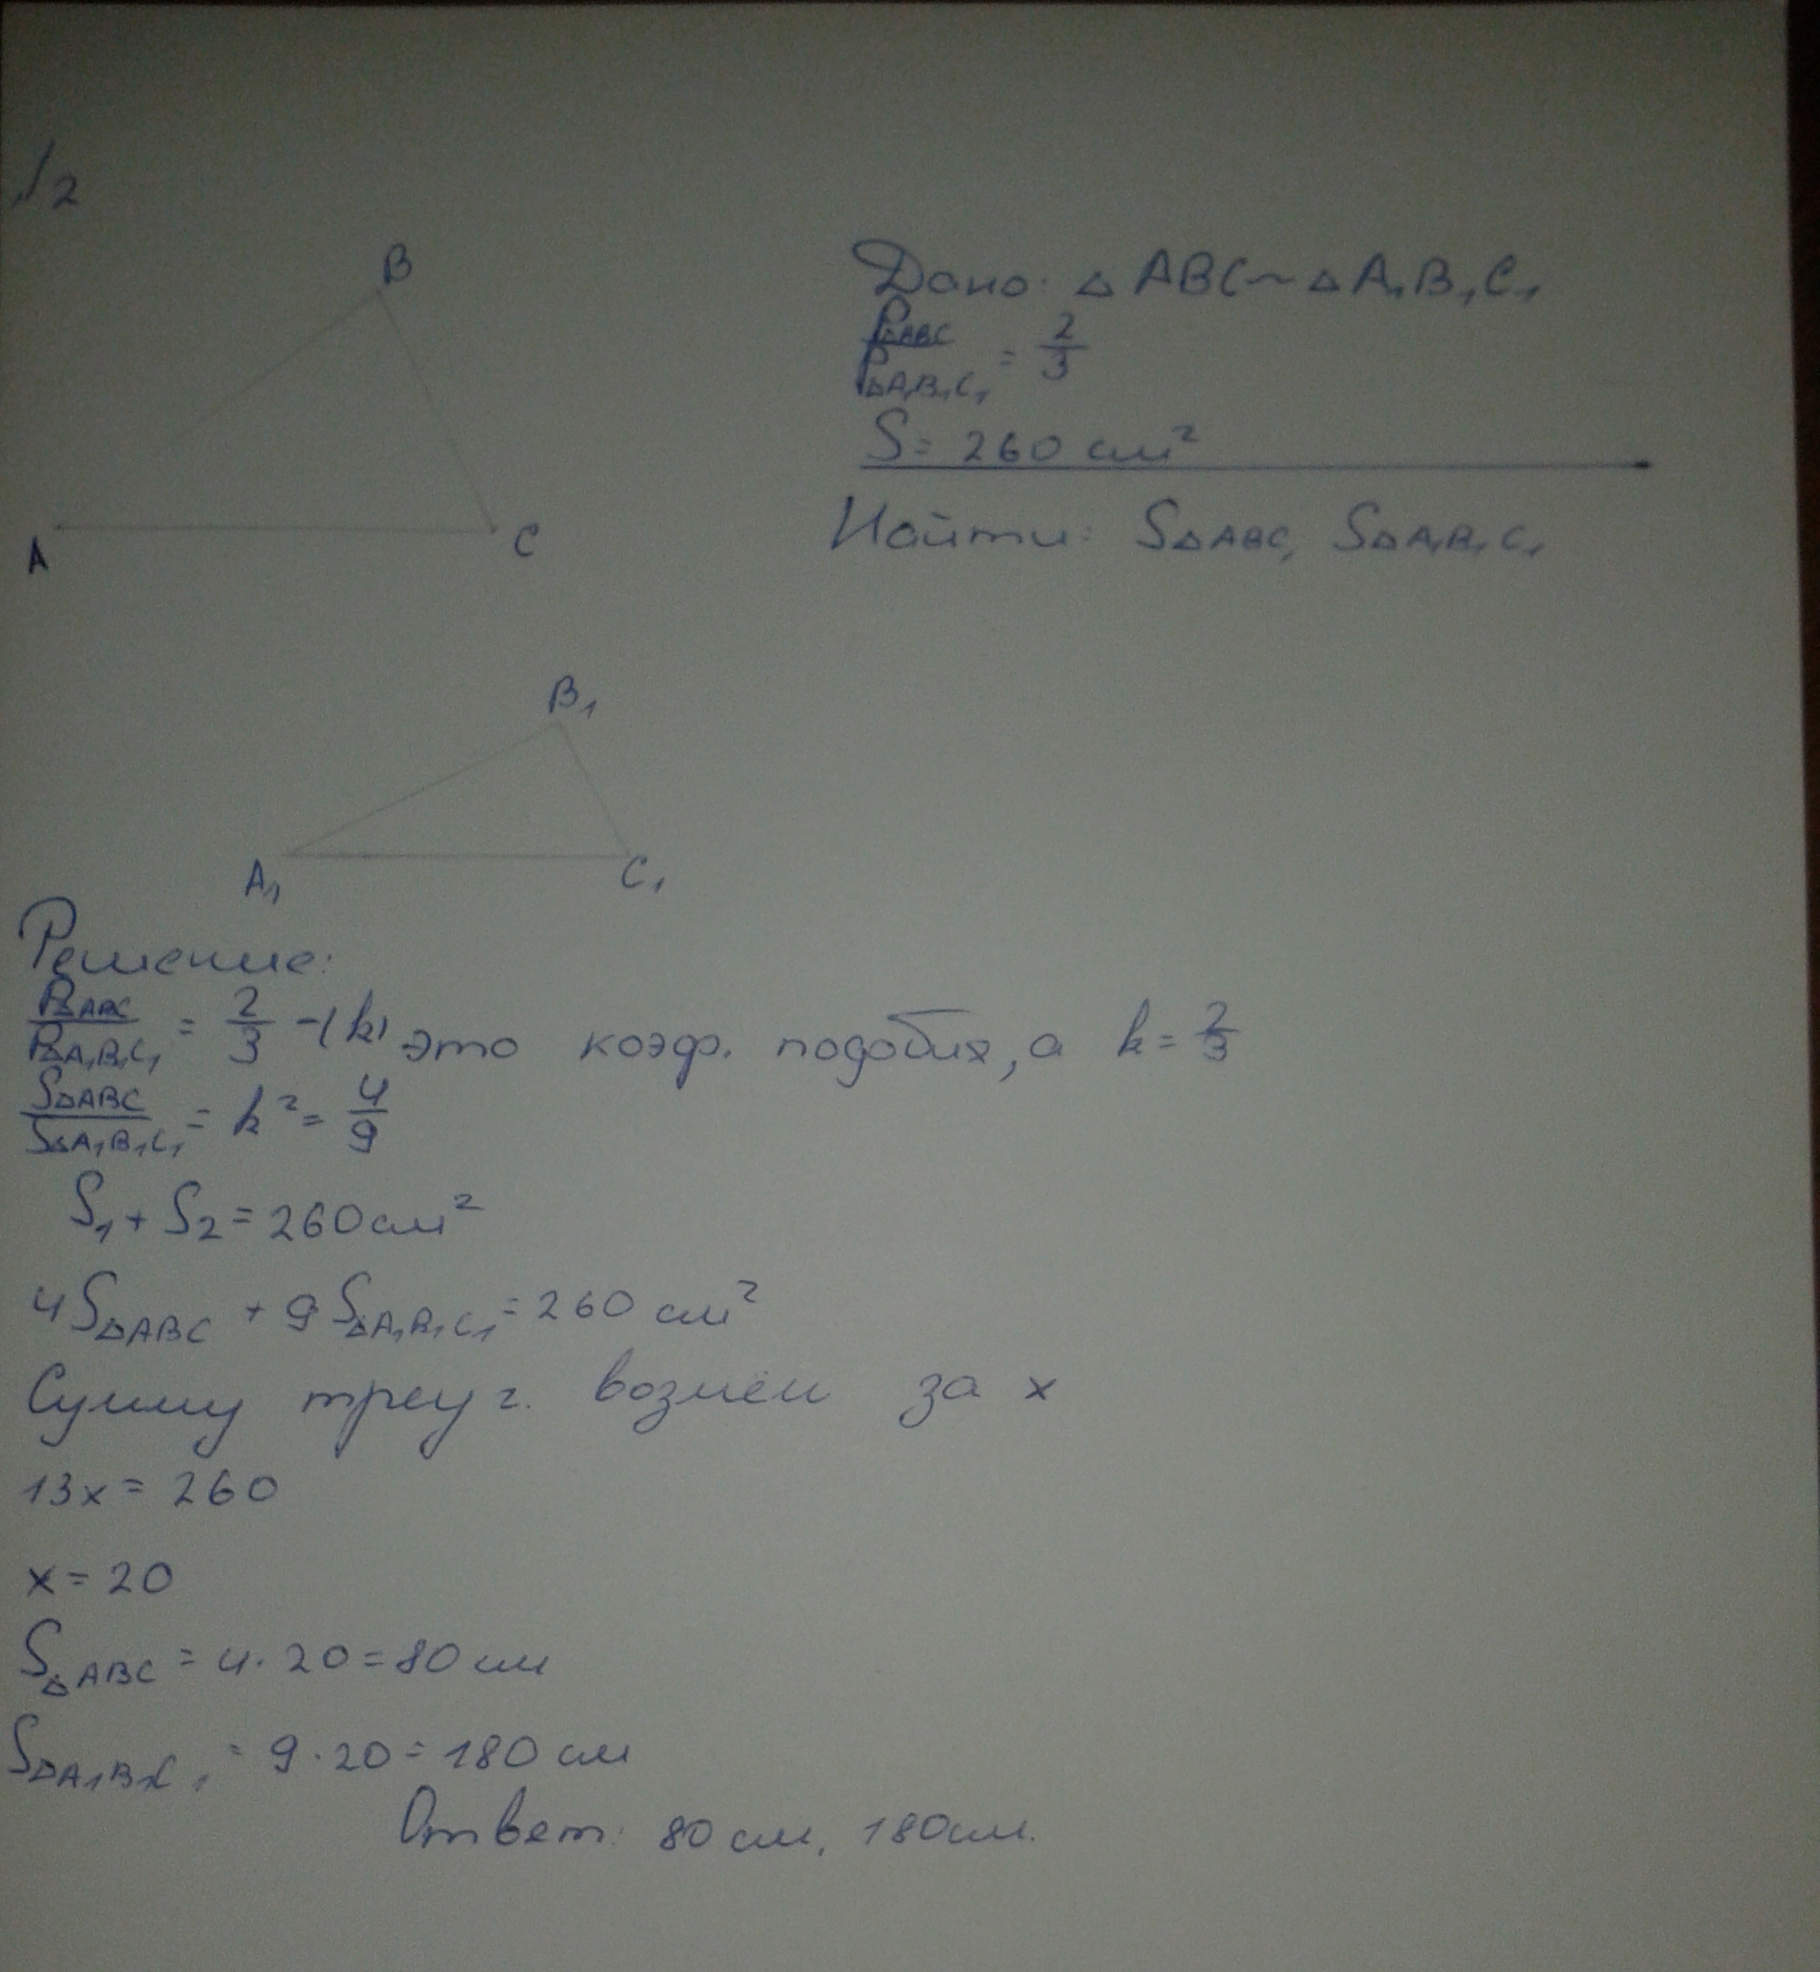 √2
B
A
C
Дано: △ABC ~ △A₁B₁C₁
P△ABC/P△A₁B₁C₁ = 2/3
S = 260 см²
Найти: S△ABC, S△A₁B₁C₁
B₁
A₁
C₁
Решение:
P△ABC/P△A₁B₁C₁ = 2/3 - (k) это коэф. подобия, а k = 2/3
S△ABC/S△A₁B₁C₁ = k² = 4/9
S₁ + S₂ = 260 см²
4S△ABC + 9S△A₁B₁C₁ = 260 см²
Сумму треуг. возмём за x
13x = 260
x = 20
S△ABC = 4 · 20 = 80 см
S△A₁B₁C₁ = 9 · 20 = 180 см
Ответ: 80 см, 180 см.